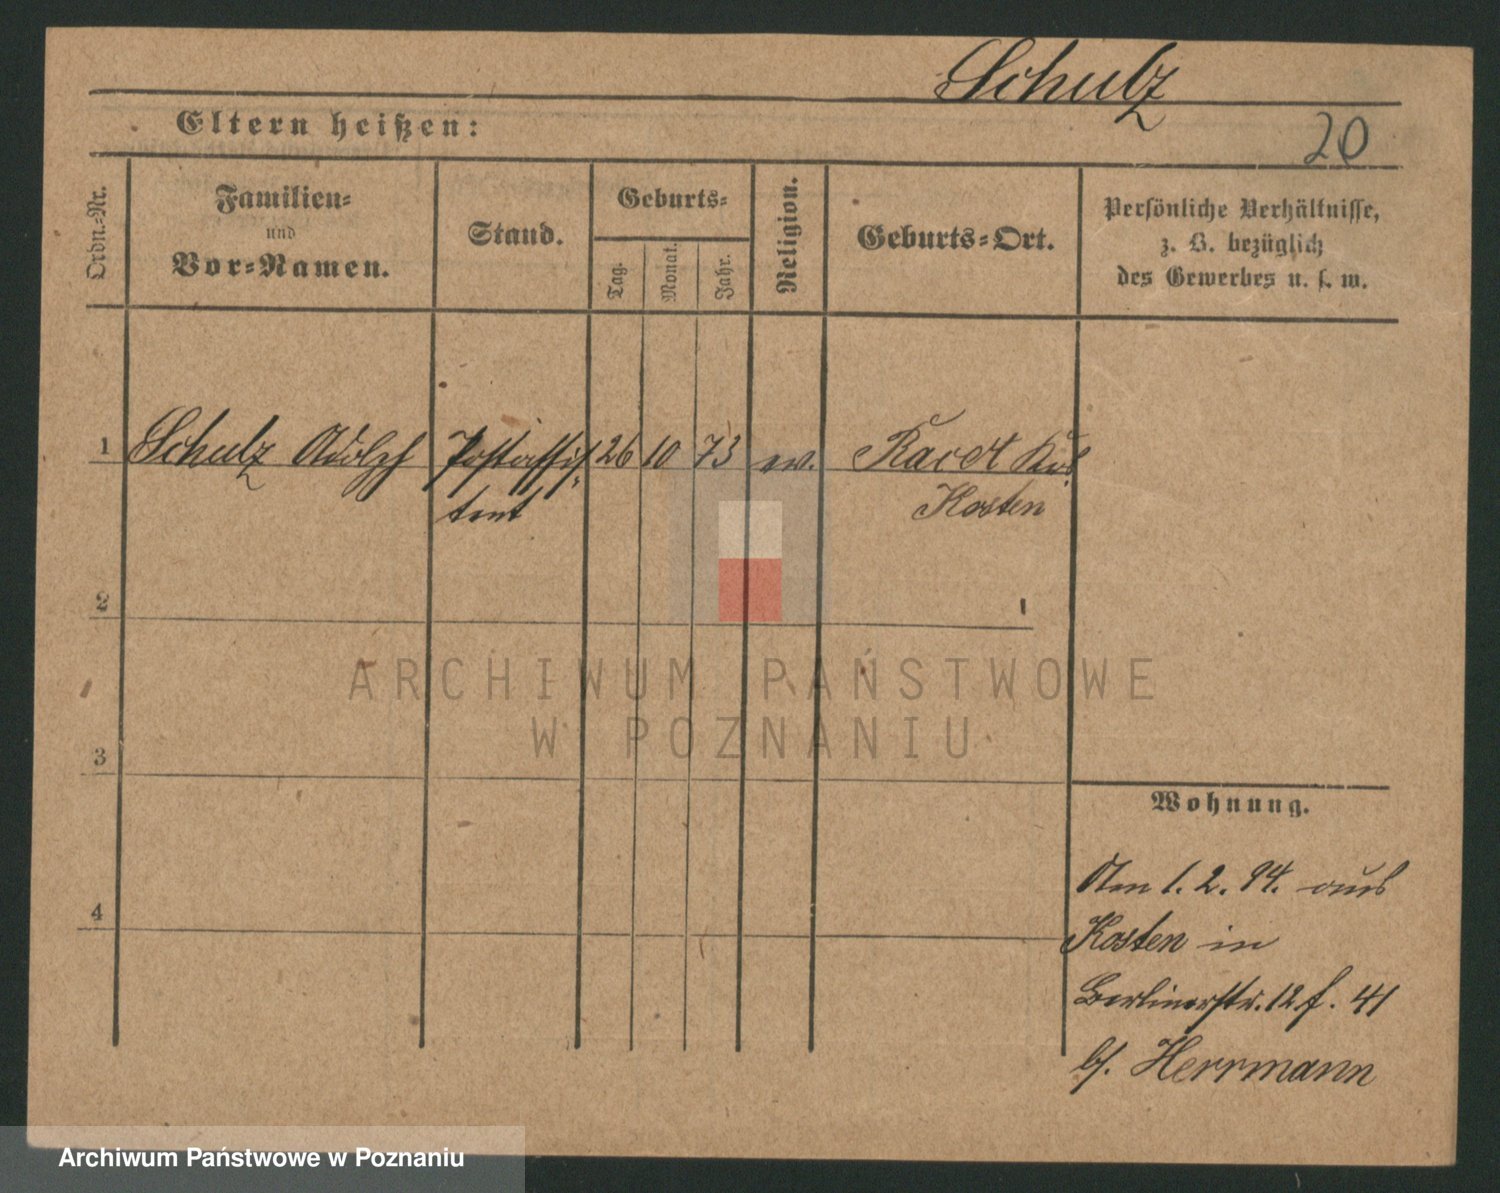 Schulz
Eltern heißen:
20
Ordn.-Nr.
Familien-
und
Vor-Namen.
Stand.
Geburts-
Tag.
Monat.
Jahr.
Religion.
Geburts-Ort.
Persönliche Verhältnisse,
z. B. bezüglich
des Gewerbes u. s. w.
1 Schulz Adolph Postassis- 26 10 73 ev. Racot
tent Kosten
2
ARCHIWUM PAŃSTWOWE
W POZNANIU
3
Wohnung.
Am 1. 2. 94. aus
4
Kosten in
Berlinerstr. 12 f. 41
b/. Herrmann
Archiwum Państwowe w Poznaniu